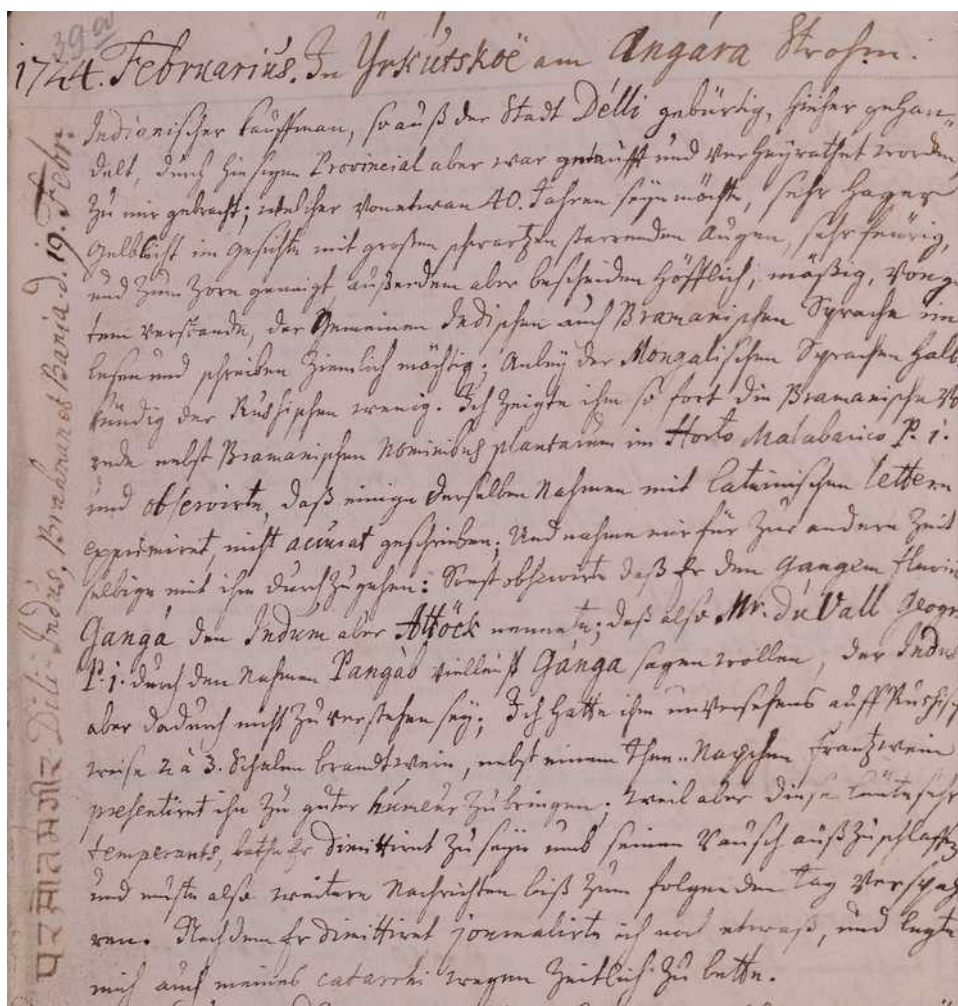 39a
1744. Februarius. In Yrkutskoë am Angára Strohm.
Indianischer Kauffman, so auß der Stadt Délli gebürtig, hieher gehan-
delt, durch hiesigen Provincial aber war getaufft und verheyrathet worden,
zu mir gebracht; welcher von etwan 40. Jahren seyn möchte, sehr hager
gelblicht im gesichte mit großen schwartzen starrenden Augen, sehr feürig,
und zum Zorn geneigt, außerdem aber bescheiden höfflich, mäßig, von gu-
tem verstande, der gemeinen Indischen auch Bramanischen Sprache im
lesen und schreiben ziemlich mächtig; Anbey der Mongalischen Sprachen halb
kündig der Rußischen wenig. Ich zeigte ihm so fort die Bramanische Vor
rede nebst Bramanischen Nominibus plantarum im Horto Malabarico P. 1.
und observirte, daß einige derselben Nahmen mit lateinischen lettern
exprimirt, nicht accurat geschrieben; Und nahme mir für zur andern Zeit
selbige mit ihm durchzugehen: Sonst observirte daß Er den Gangem fluvium
Gangá den Indum aber Attöck nennete; daß also Mr. du Vall Geogr.
P. 1. durch den Nahmen Pangàb vielleicht Gánga sagen wollen, der Indus
aber dadurch nicht zu verstehen sey. Ich hatte ihm unversehens auff Rußisch
weise 2 à 3. Schalen brandtwein, nebst einem Thee-Näpchen Frantzwein
presentirt ihn zu guter humeur zu bringen; weil aber diese leüte sehr
temperants, bathe Er dimittirt zu seyn umb seinen Rausch außzuschlaffen
und muste also weitere Nachrichten biß zum folgenden Tag verspah
ren. Nachdem Er dimittirt journalirte ich noch etwaß, und legte
mich auch meines catarrhi wegen zeitlich zu bette.
Dili-Indus, Brahman et Bania. d. 19. Febr.